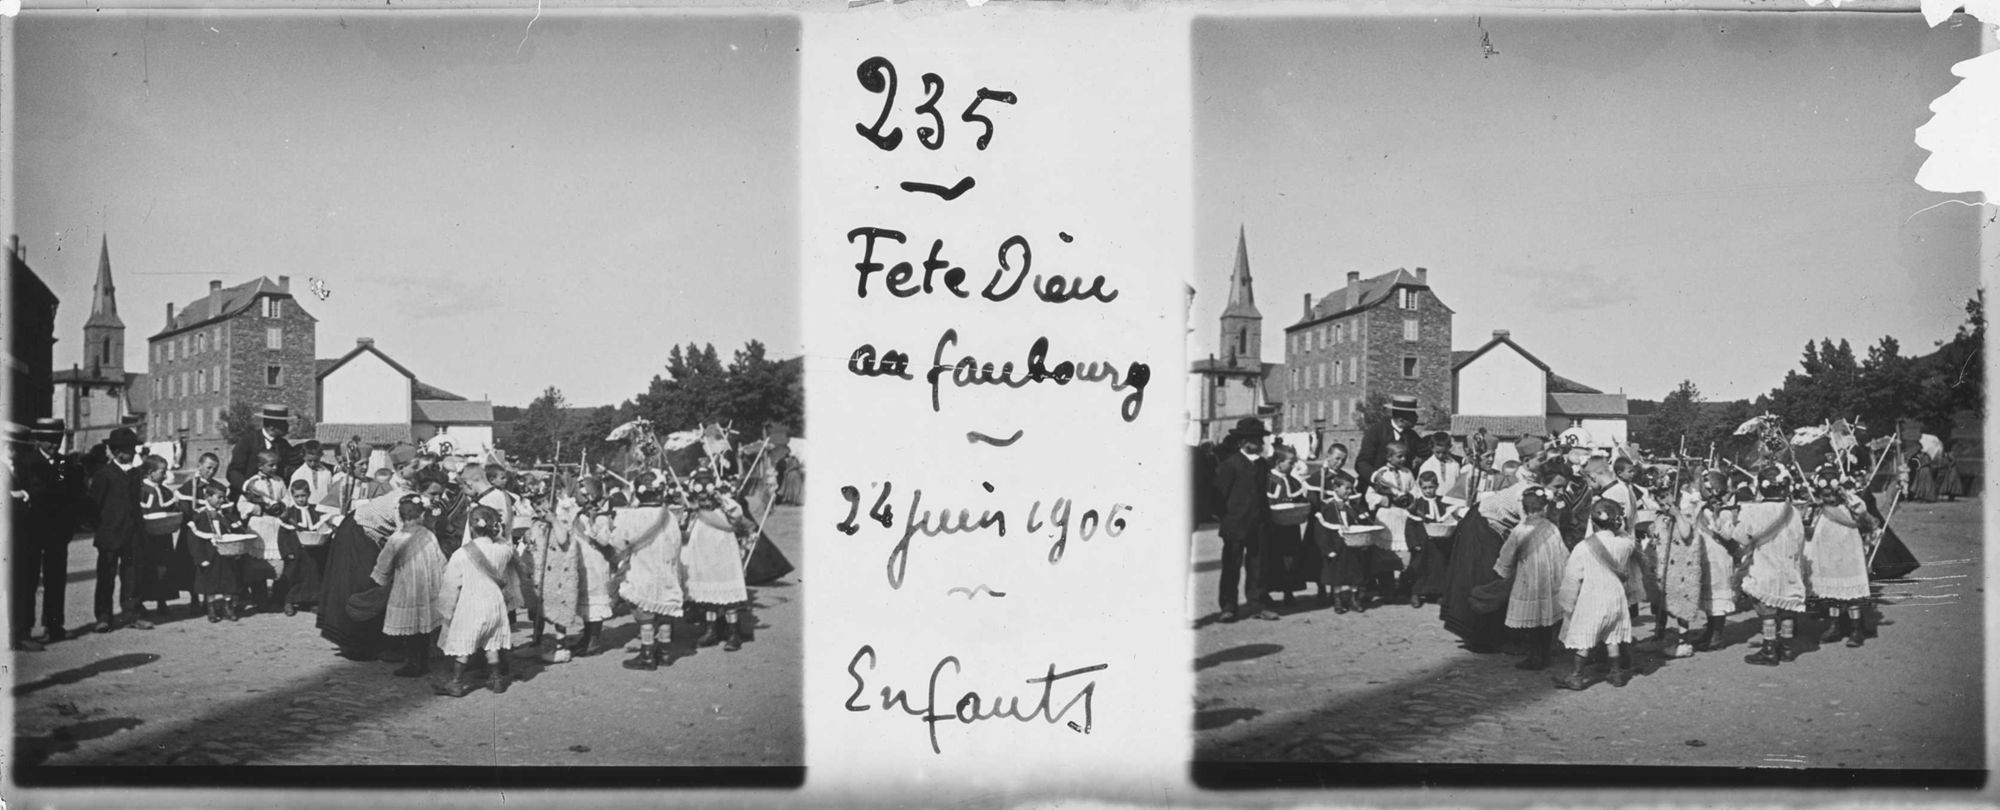 235
Fete Dieu
au faubourg
24 Juin 1906
Enfants